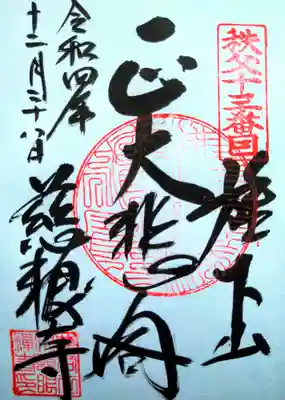 秩父十三番目
旗下山
正大悲閣
令和四年
十二月二十八日
慈眼寺